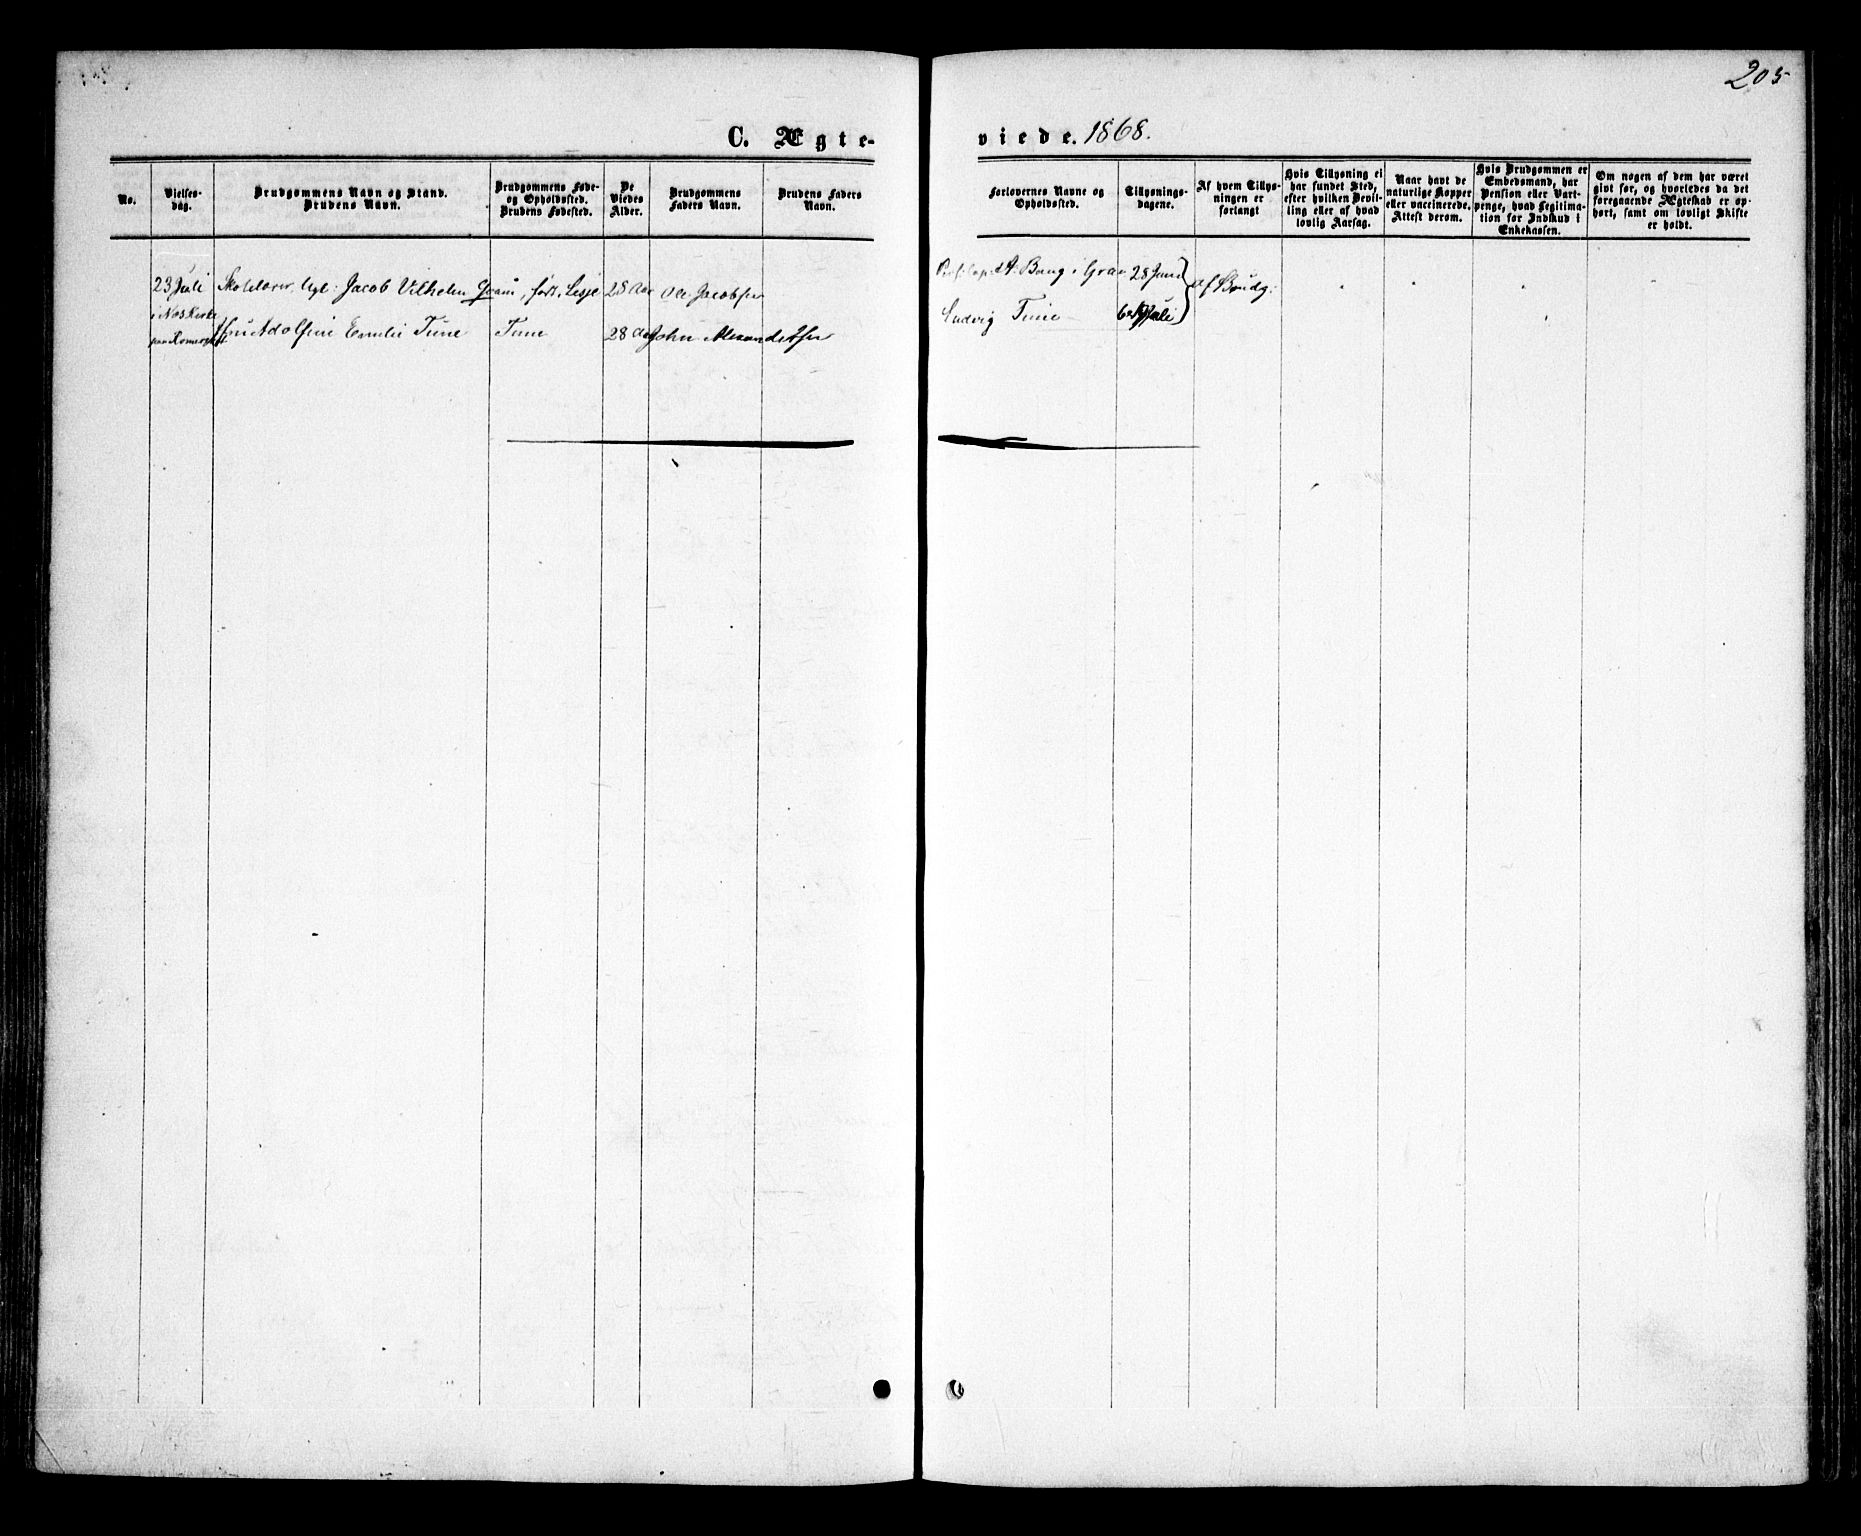 205
C. Ægte-
viede. 1868.
No.
Vielses-
dag.
Brudgommens Navn og Stand.
Brudens Navn.
Brudgommens Føde-
og Opholdssted.
Brudens Fødested.
De
Viedes
Alder.
Brudgommens
Faders Navn.
Brudens Faders
Navn.
Forlovernes Navne og
Opholdssted.
Tillysnings-
dagene.
Af hvem Tillys-
ningen er
forlangt
Hvis Tillysning ei
har fundet Sted,
efter hvilken Bevil-
ling eller af hvad
lovlig Aarsag.
Naar havt de
naturlige Kopper
eller vaccinerede.
Attest derom.
Hvis Brudgommen er
Embedsmand, har
Pension eller Vart-
penge, hvad Legitima-
tion for Indskud i
Enkekassen.
Om nogen af dem har været
givt før, og hvorledes da det
foregaaende Ægteskab er op-
hørt, samt om lovligt Skifte
er holdt.
23 Juli
Jacob Vilhelm
28 Aar
Ole Jacobsen
Bang i
28 Juni
af Brudg.
i Næs Kirke
Adolfine Emilie Tune
Tune
28 Aar
John
Ludvig Tune
Juli